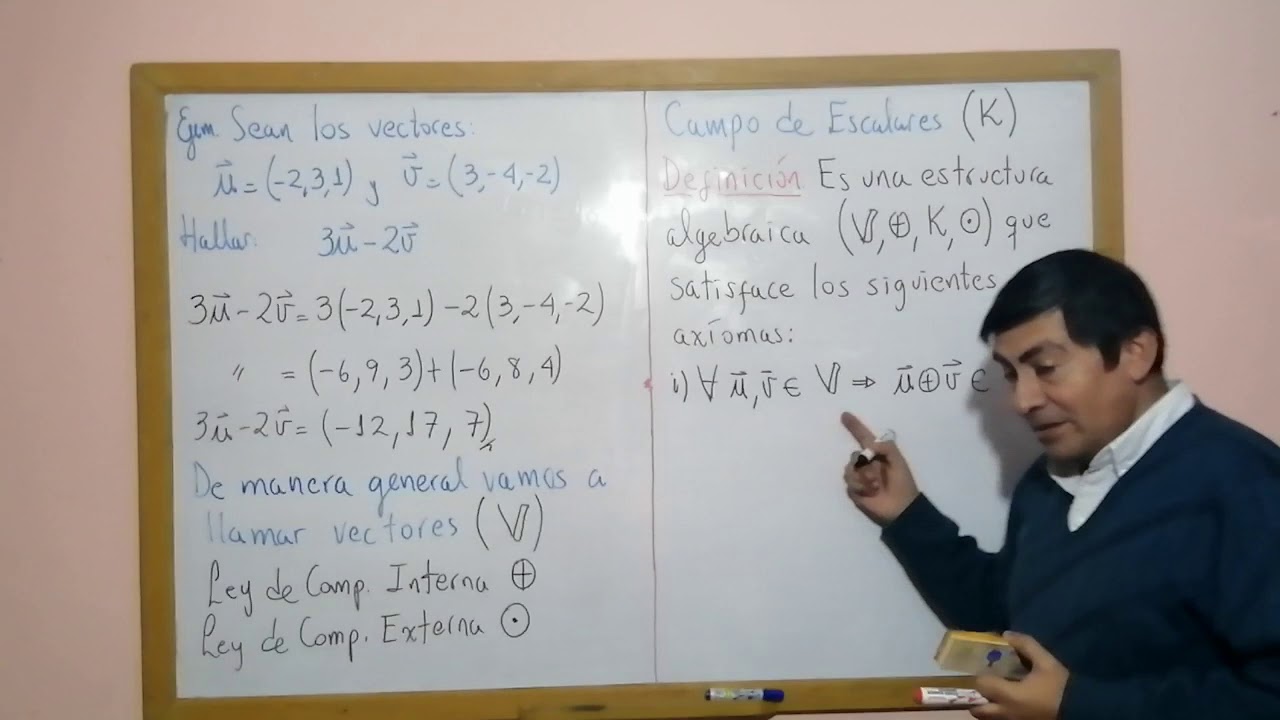 Ejem. Sean los vectores:
u⃗ = (-2,3,1) y v⃗ = (3,-4,-2)
Hallar: 3u⃗ - 2v⃗
3u⃗ - 2v⃗ = 3(-2,3,1) - 2(3,-4,-2)
" = (-6,9,3)+(-6,8,4)
3u⃗ - 2v⃗ = (-12,17,7)
De manera general vamos a
llamar vectores (𝕍)
Ley de Comp. Interna ⊕
Ley de Comp. Externa ⊙
Campo de Escalares (K)
Definición Es una estructura
algebraica (𝕍,⊕,K,⊙) que
satisface los siguientes
axiomas:
i) ∀ u⃗,v⃗ ∈ 𝕍 ⇒ u⃗⊕v⃗ ∈